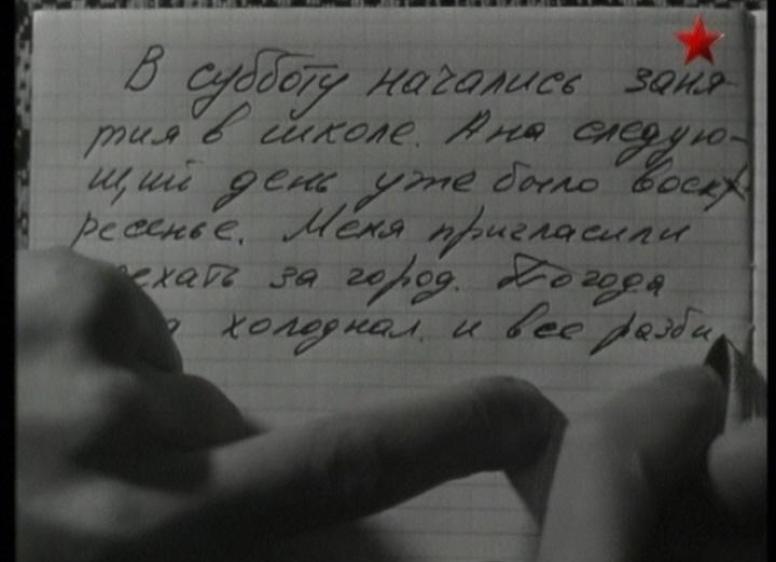 В субботу начались заня-
тия в школе. А на следую-
щий день уже было воск-
ресенье. Меня пригласили
ехать за город. Погода
холодная. и все разби